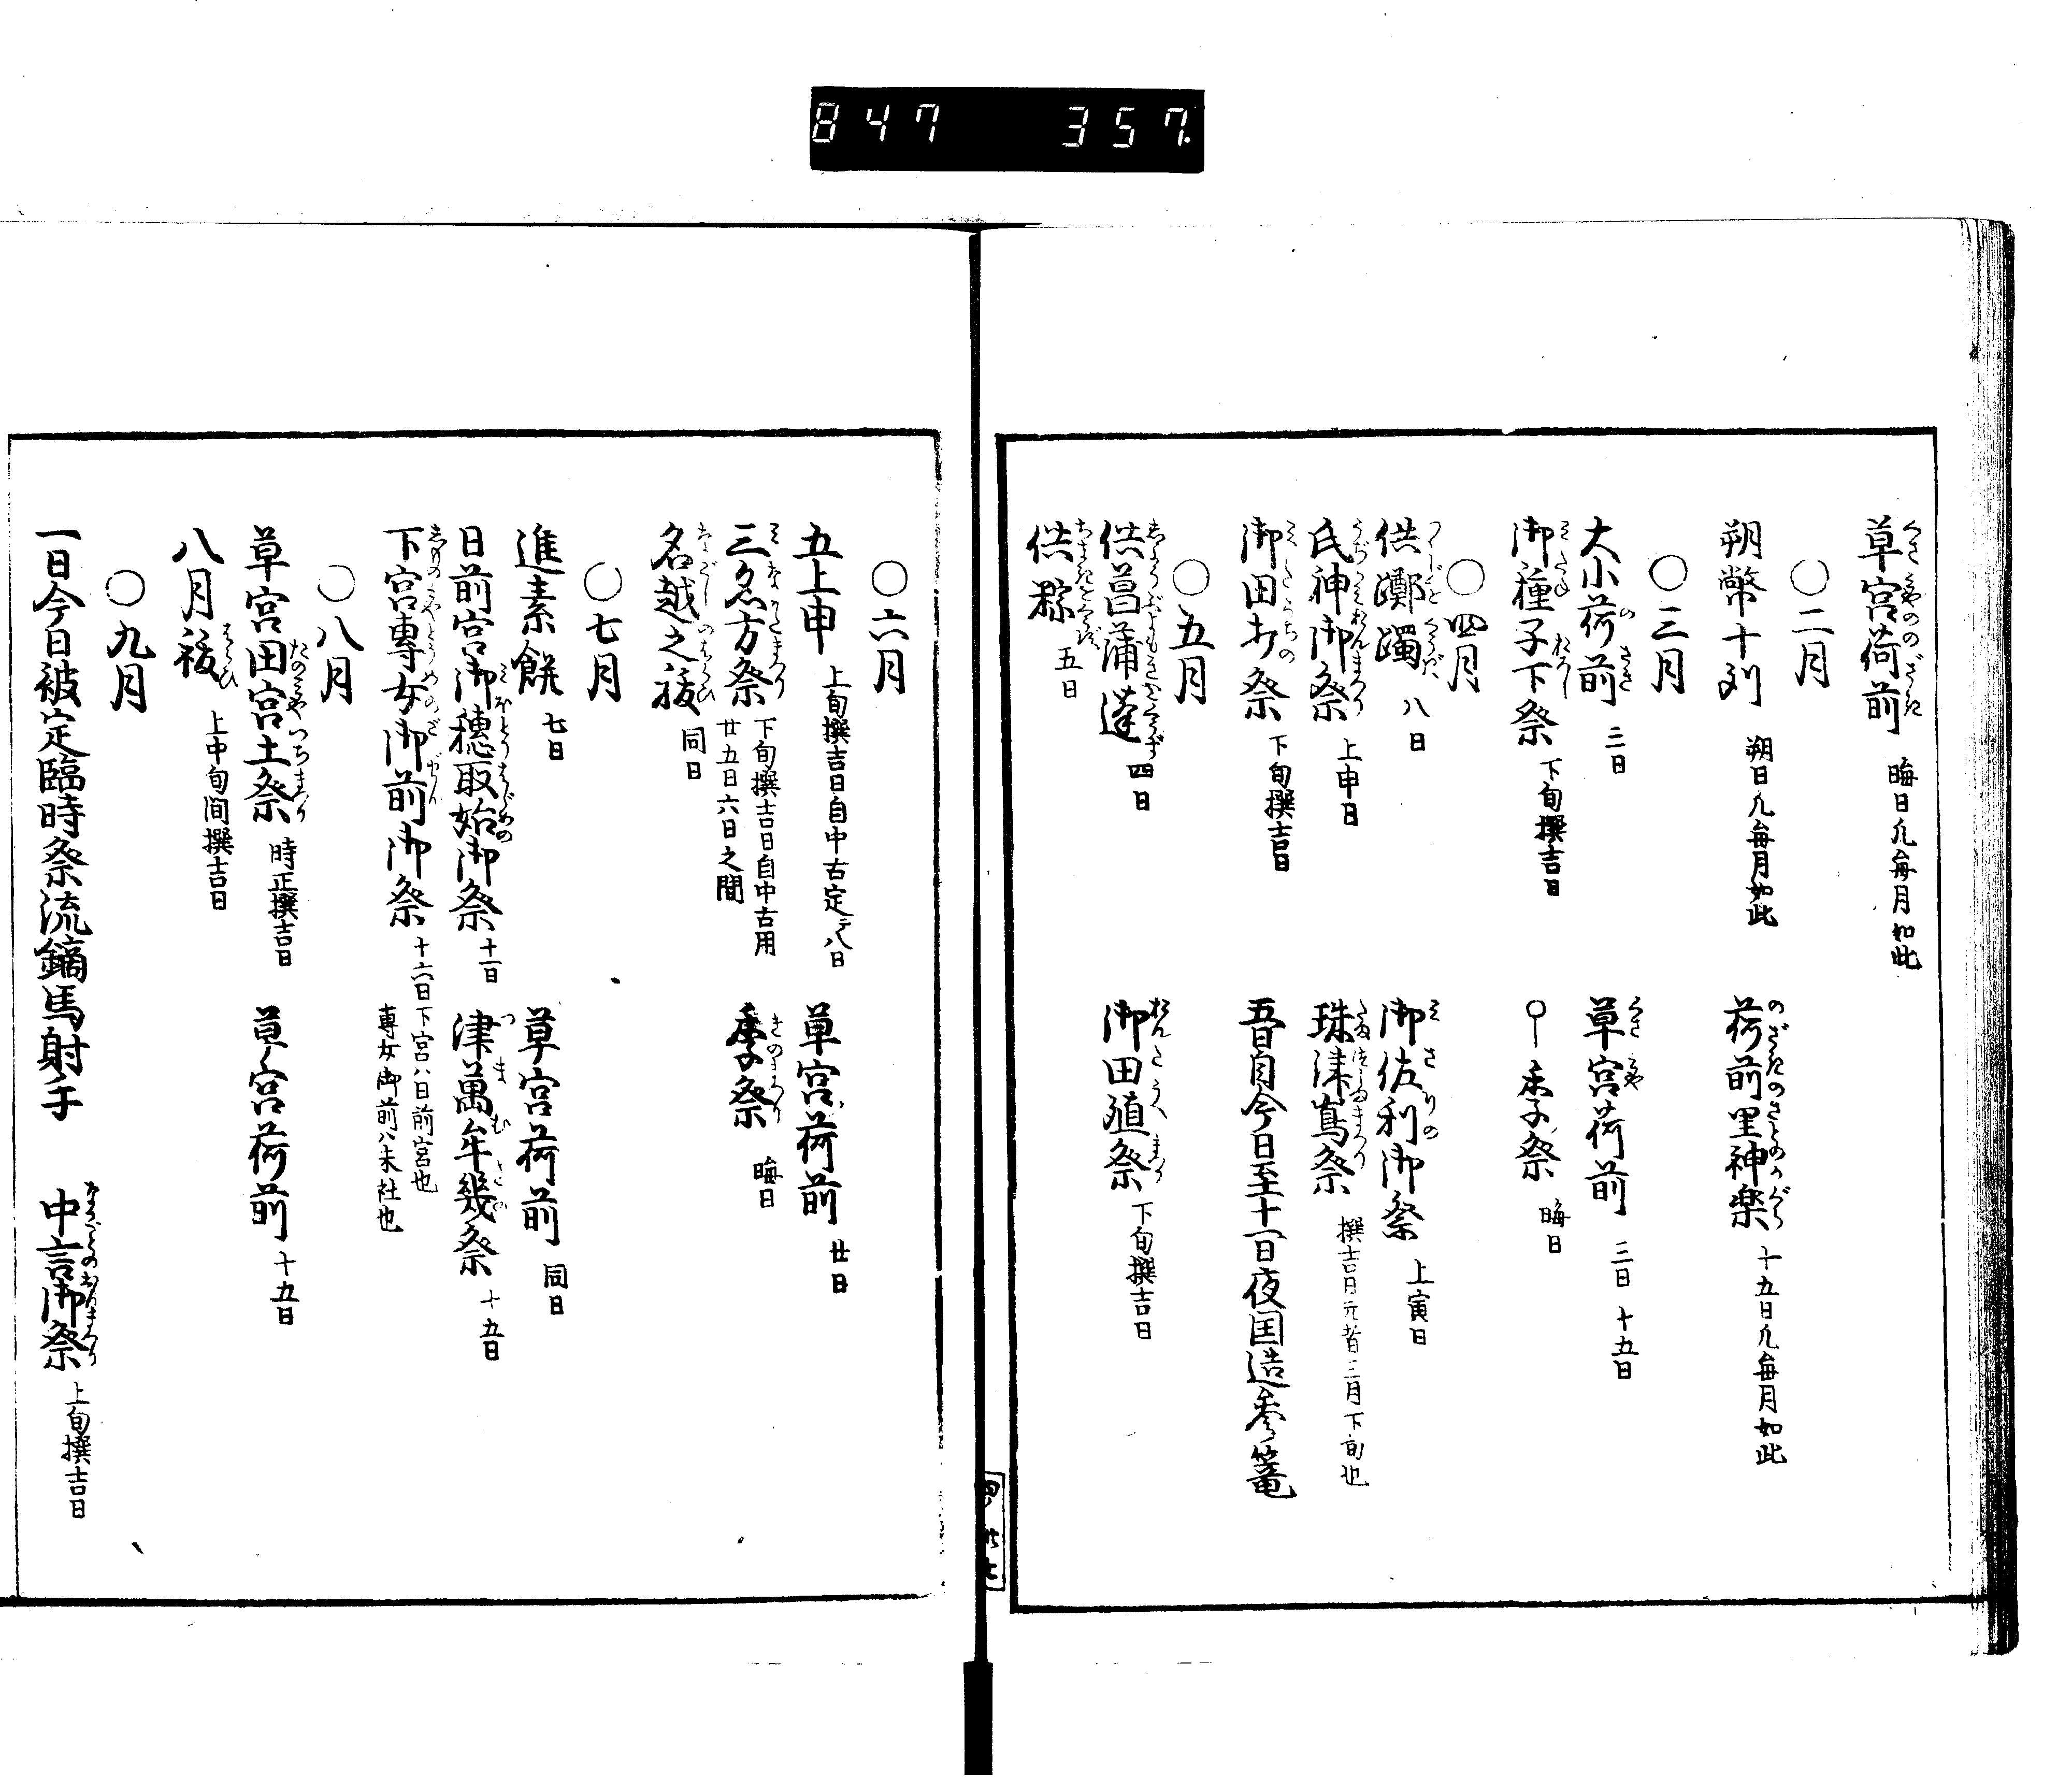 847 357
草宮荷前 晦日凡毎月如此
○二月
朔幣十列 朔日凡毎月如此 荷前里神楽 十五日凡毎月如此
○三月
大小荷前 三日 草宮荷前 三日 十五日
御種子下祭 下旬撰吉日 季祭 晦日
○四月
供躑躅 八日 御佐利御祭 上寅日
氏神御祭 上申日 珠津嶌祭 撰吉日元者三月下旬也
御田打祭 下旬撰吉日 五日自今日至十一日夜国造参篭
○五月
供菖蒲蓬 四日 御田殖祭 下旬撰吉日
供粽 五日
○六月
五上申 上旬撰吉日自中古定 八日 草宮荷前 廿日
三名方祭 下旬撰吉日自中古用廿五日六日之間 季祭 晦日
名越之祓 同日
○七月
進素餅 七日 草宮荷前 同日
日前宮御穂取始御祭 十一日 津萬牟幾祭 十五日
下宮専女御前御祭 十六日下宮ハ日前宮也専女御前ハ末社也
○八月
草宮田宮土祭 時正撰吉日 草宮荷前 十五日
八月祓 上中旬間撰吉日
○九月
一日今日被定臨時祭流鏑馬射手 中言御祭 上旬撰吉日